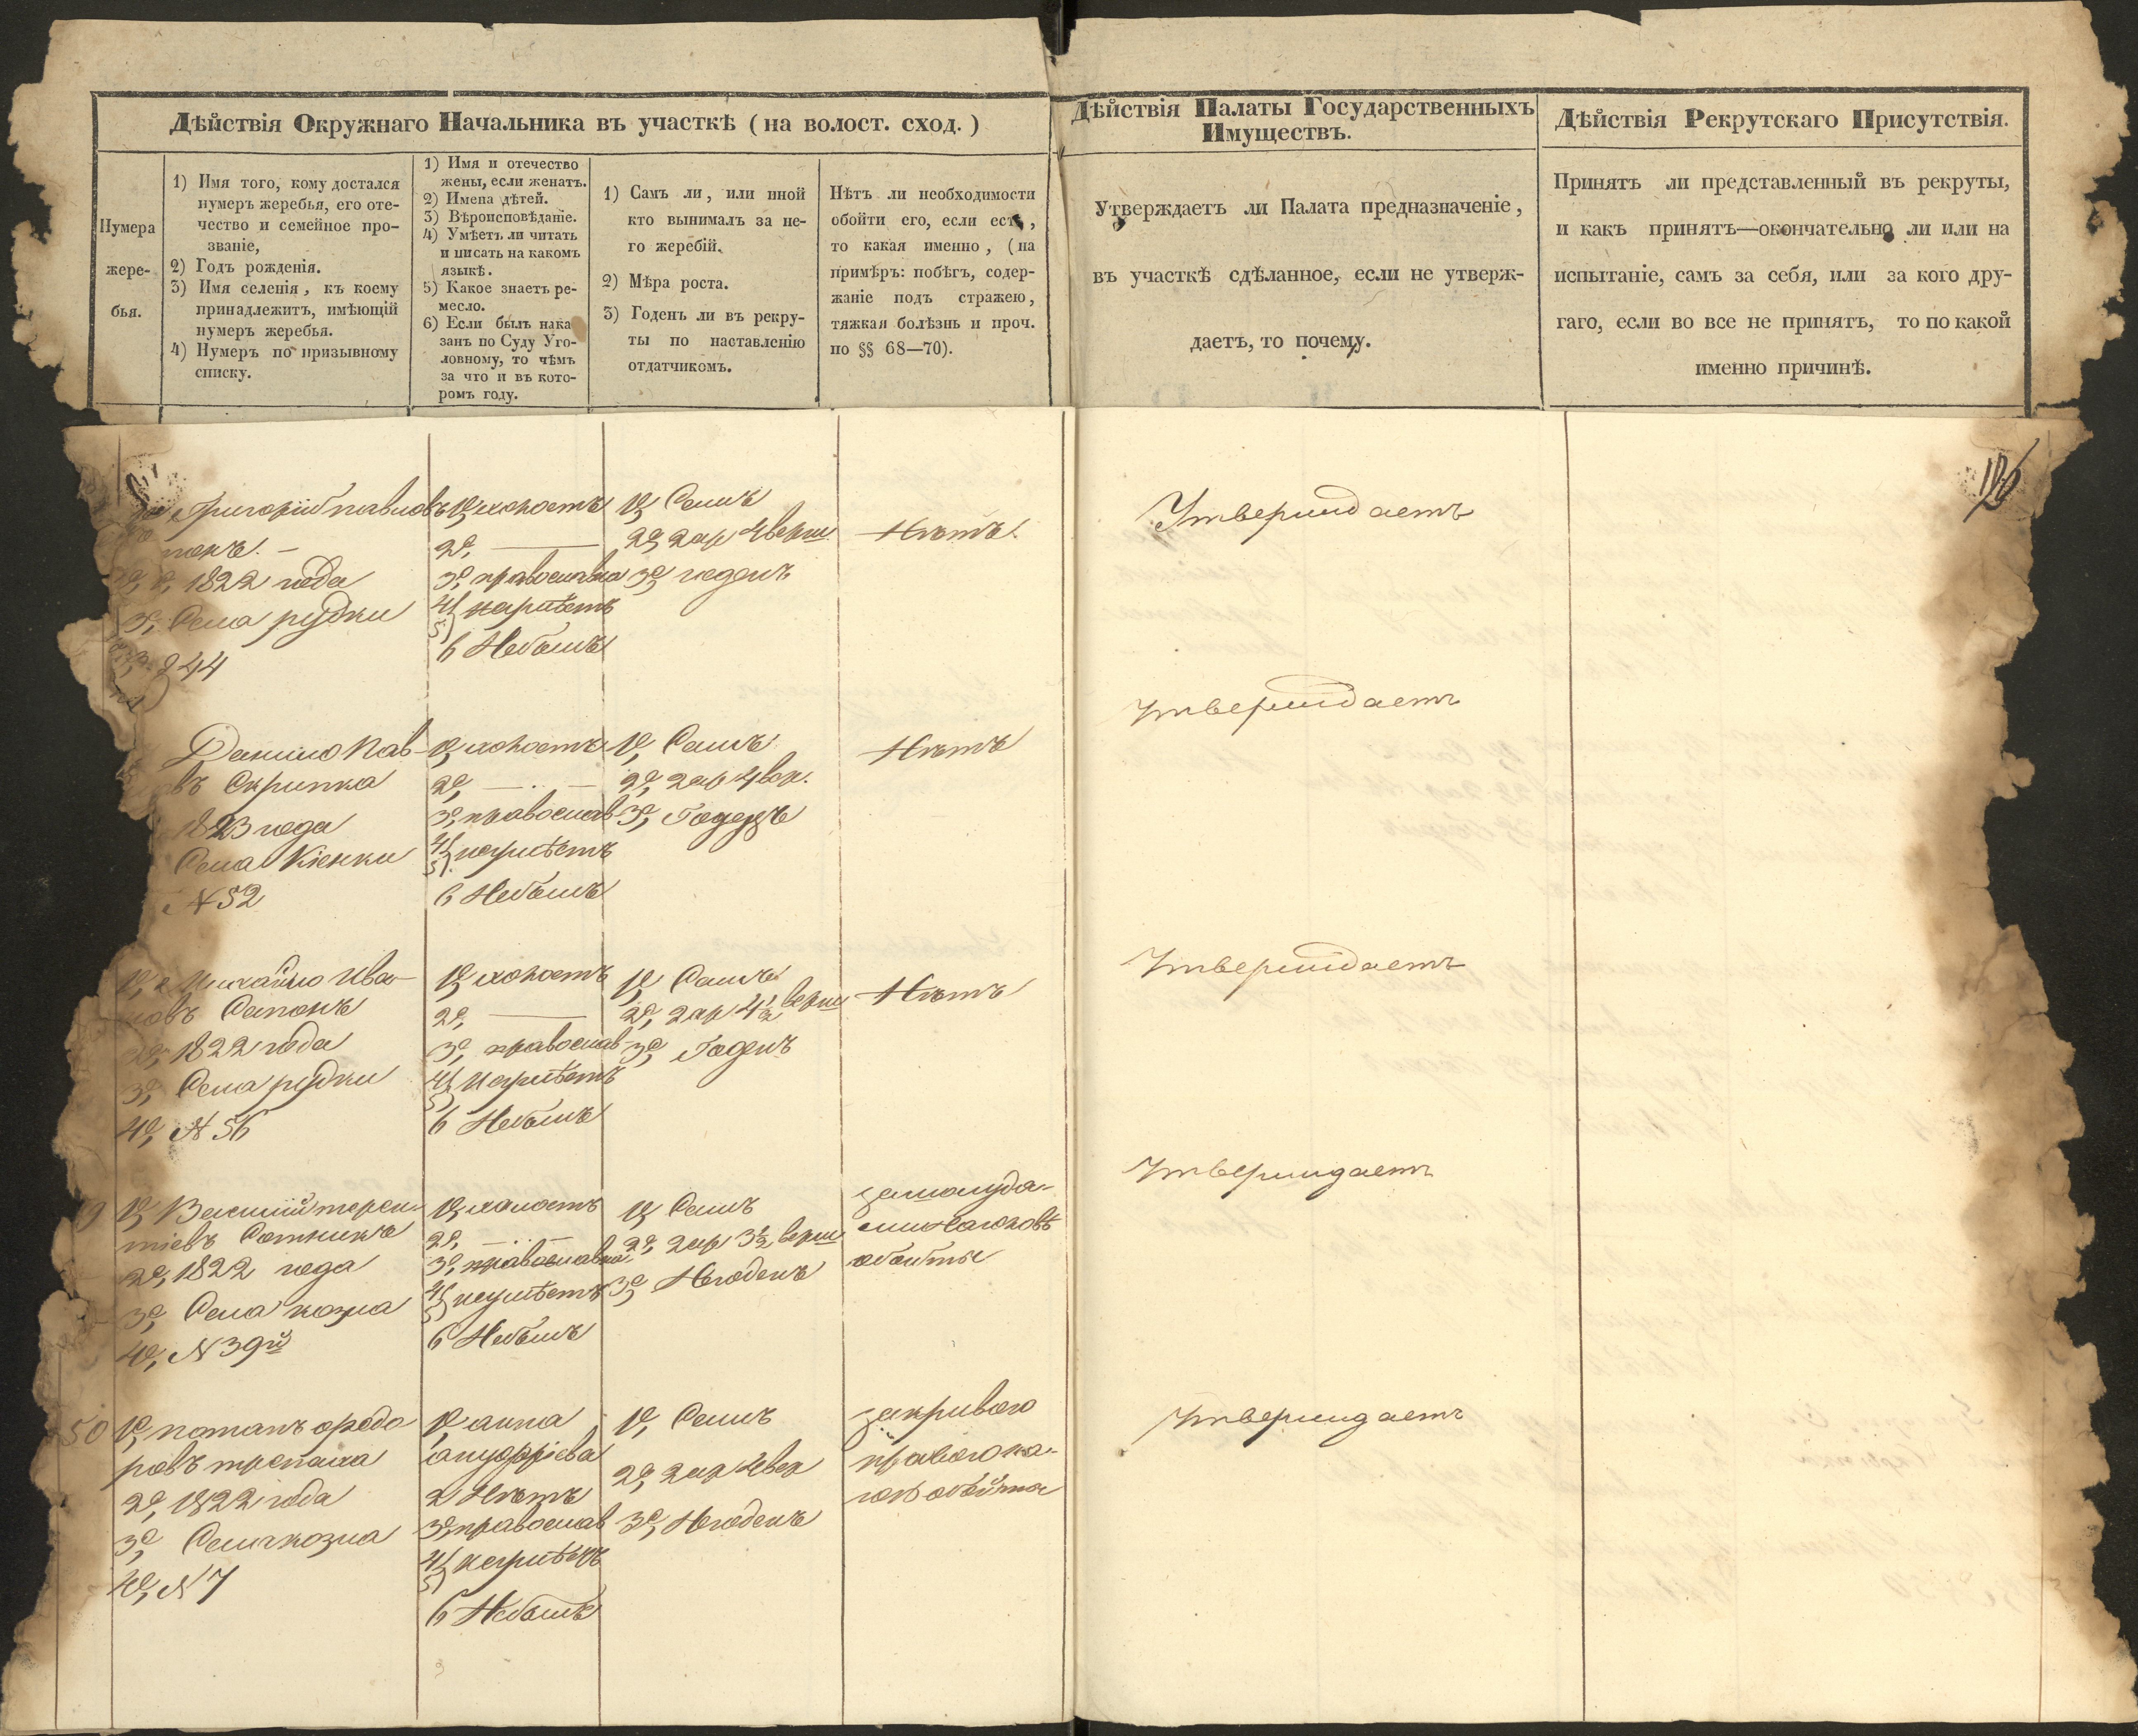 Дѣйствія Окружнаго Начальника въ участкѣ (на волост. сход.)
Нумера
жере-
бья.
1) Имя того, кому достался
нумеръ жеребья, его оте-
чество и семейное про-
званіе,
2) Годъ рожденія.
3) Имя селенія, къ коему
принадлежитъ, имѣющій
нумеръ жеребья.
4) Нумеръ по призывному
списку.
1) Имя и отечество
жены, если женатъ.
2) Имена дѣтей.
3) Вѣроисповѣданіе.
4) Умѣетъ ли читать
и писать на какомъ
языкѣ.
5) Какое знаетъ ре-
месло.
6) Если былъ нака
занъ по Суду Уго-
ловному, то чѣмъ
за что и въ кото-
ромъ году.
1) Самъ ли, или иной
кто вынималъ за не-
го жеребій.
2) Мѣра роста.
3) Годенъ ли въ рекру-
ты по наставленію
отдатчикомъ.
Нѣтъ ли необходимости
обойти его, если есть,
то какая именно, (на
примѣръ: побѣгъ, содер-
жаніе подъ стражею,
тяжкая болѣзнь и проч.
по §§ 68—70).
Дѣйствія Палаты Государственныхъ
Имуществъ.
Утверждаетъ ли Палата предназначеніе,
въ участкѣ сдѣланное, если не утверж-
даетъ, то почему.
Дѣйствія Рекрутскаго Присутствія.
Принятъ ли представленный въ рекруты,
и какъ принятъ—окончательно ли или на
испытаніе, самъ за себя, или за кого дру-
гаго, если во все не принятъ, то по какой
именно причинѣ.
Григорій павловъ
понъ. —
1822 года
3е, Села рудки
244
1е, холостъ
2е, —
3е, православна
4) неумѣетъ
5)
6 Небылъ
1е, Самъ
2е, 2 ар 4 верш
3е, годенъ
Нѣтъ.
Утверждаетъ
Данило Пав-
въ Скрипка
1823 года
Села Кіенки
N 52
1е, холостъ
2е, —
3е, православ
4) неумѣетъ
5).
6 Небылъ
1е, Самъ
2е, 2 ар 4 вер.
3е, Годенъ
Нѣтъ
Утверждаетъ
1е, Михайло Ива-
новъ Сапонъ
2е, 1822 года
3е, Села рудки
4е, N 56
1е, холостъ
2е, —
3е, православ
4) Неумѣетъ
5)
6 Небылъ
1е, Самъ
2е, 2 ар 4½ верш
3е, Годенъ
Нѣтъ
Утверждаетъ
9
1е, Василий терен-
тіевъ Сотникъ
2е, 1822 года
3е, Села козла
4е, N 39й
1е, холостъ
2е, —
3е, православна
4) неумѣетъ
5)
6 Небылъ
1е, Самъ
2е, 2 ар 3½ верш
3е, Негоденъ
обойты
Утверждаетъ
50
1е, потапъ федо
ровъ трепача
2е, 1822 года
3е, Села козла
4е, N 7
1е, анна
ануфріева
2 Нѣтъ
3е, православ
4) неумѣетъ
5)
6 Небылъ
1е, Самъ
2е, 2 ар 4 вер
3е, Негоденъ
закривого
правого ока-
Утверждаетъ